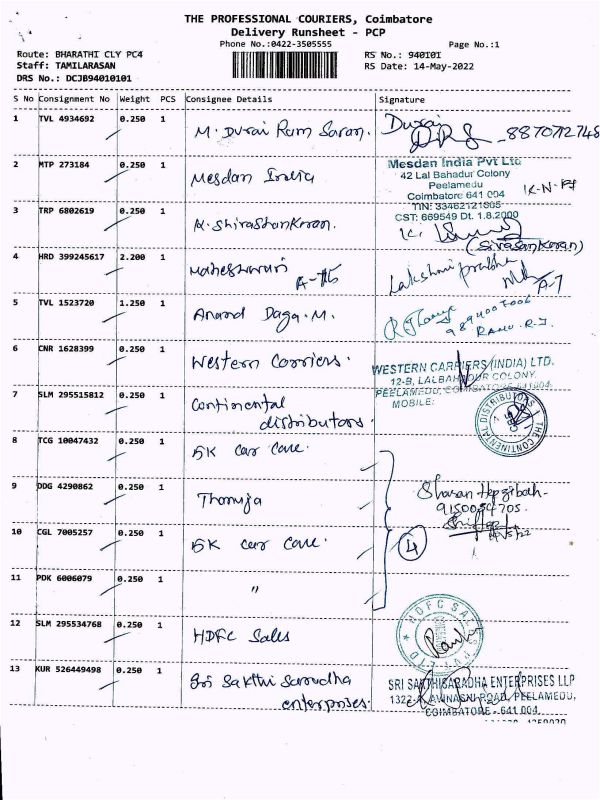 THE PROFESSIONAL COURIERS, Coimbatore
Delivery Runsheet - PCP
Phone No.:0422-3505555
Page No.:1
Route: BHARATHI CLY PC4
RS No.: 940101
Staff: TAMILARASAN
RS Date: 14-May-2022
DRS No.: DCJB94010101
S No Consignment No Weight PCS Consignee Details Signature
1 TVL 4934692 0.250 1 M. Durai Ram Saran. Durai 8870712748
2 MTP 273184 0.250 1 Mesdan India
Mesdan India Pvt Ltd
42 Lal Bahadur Colony
Peelamedu
Coimbatore 641 004
TIN: 33462121865
CST: 669549 Dt. 1.8.2000
3 TRP 6802619 0.250 1 K. Shivashankaran.
(Sivasankaran)
4 HRD 399245617 2.200 1 Maheshwari
Lakshmi prabha
A-7
5 TVL 1523720 1.250 1 Anand Daga. M.
9894007006
RAMU. R. J.
6 CNR 1628399 0.250 1 Western Corriers.
WESTERN CARRIERS (INDIA) LTD.
12-B, LALBAHADUR COLONY,
PEELAMEDU, COIMBATORE-641004.
MOBILE:
7 SLM 295515812 0.250 1 Continental
distributors.
THE CONTINENTAL DISTRIBUTORS
8 TCG 10047432 0.250 1 5K car care.
9 DDG 4290862 0.250 1 Thanuja
Sharan Hepzibah
9150054705
10 CGL 7005257 0.250 1 5K car care.
4
11 PDK 6006079 0.250 1 "
12 SLM 295534768 0.250 1 HDFC Sales
HDFC SALES PVT LTD
13 KUR 526449498 0.250 1 Sri Sakthi Saradha
enterprises.
SRI SAKTHISARADHA ENTERPRISES LLP
1322-A, AVINASHI ROAD, PEELAMEDU,
COIMBATORE - 641 004.